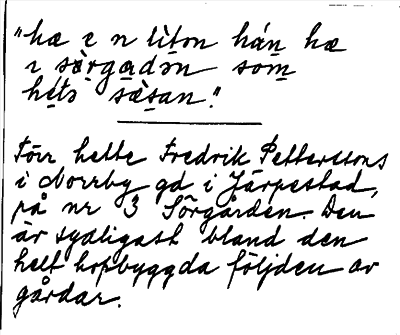 "hæ e n lìton hán hæ
ı sɵ̀rgadən som
hets sæ̀san."
Förr hette Fredrik Petterssons
i Norrby gd i Järpestad,
på nr 3 Sörgården. Den
är sydligast bland den
helt hopbyggda följden av
gårdar.